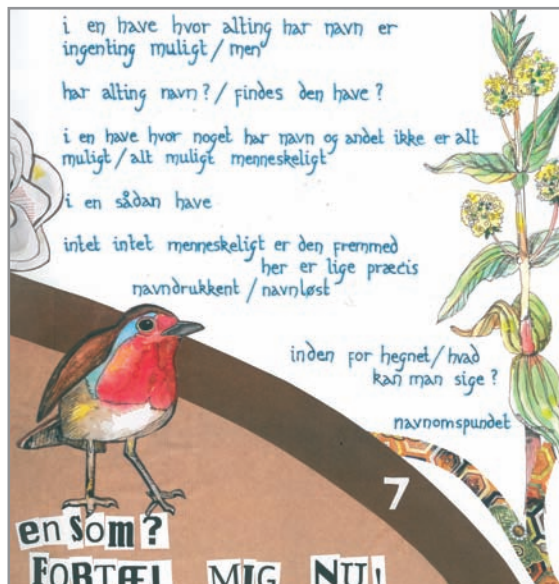 i en have hvor alting har navn er
ingenting muligt / men
har alting navn? / findes den have?
i en have hvor noget har navn og andet ikke er alt
muligt / alt muligt menneskeligt
i en sådan have
intet intet menneskeligt er den fremmed
her er lige præcis
navndrukkent / navnløst
inden for hegnet / hvad
kan man sige?
navnomspundet
7
en som?
FORTÆL MIG NU!